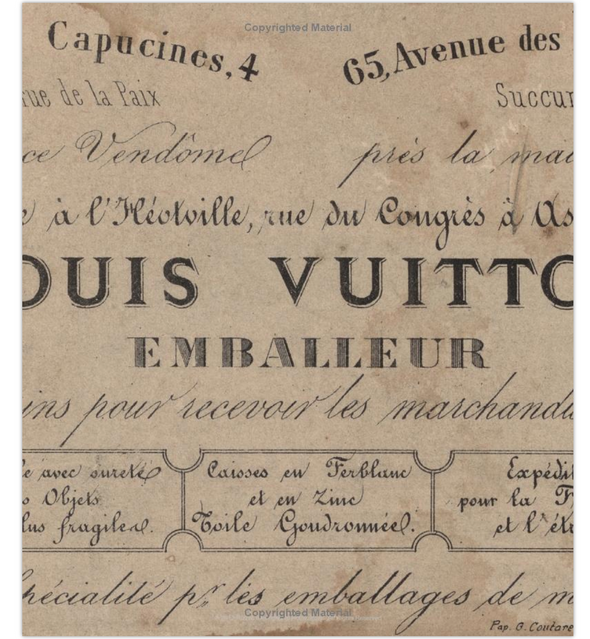 Copyrighted Material
Capucines, 4 65, Avenue des
rue de la Paix Succur
ce Vendôme près la mai
à l'Héotville, rue du Congrès à As
OUIS VUITTO
EMBALLEUR
ins pour recevoir les marchandi
e avec sureté Caisses en Ferblanc Expédit
s Objets et en Zinc pour la F
lus fragiles. Toile Goudronnée. et l'étr
pécialité pr les emballages de m
Copyrighted Material
Pap. G. Coutare